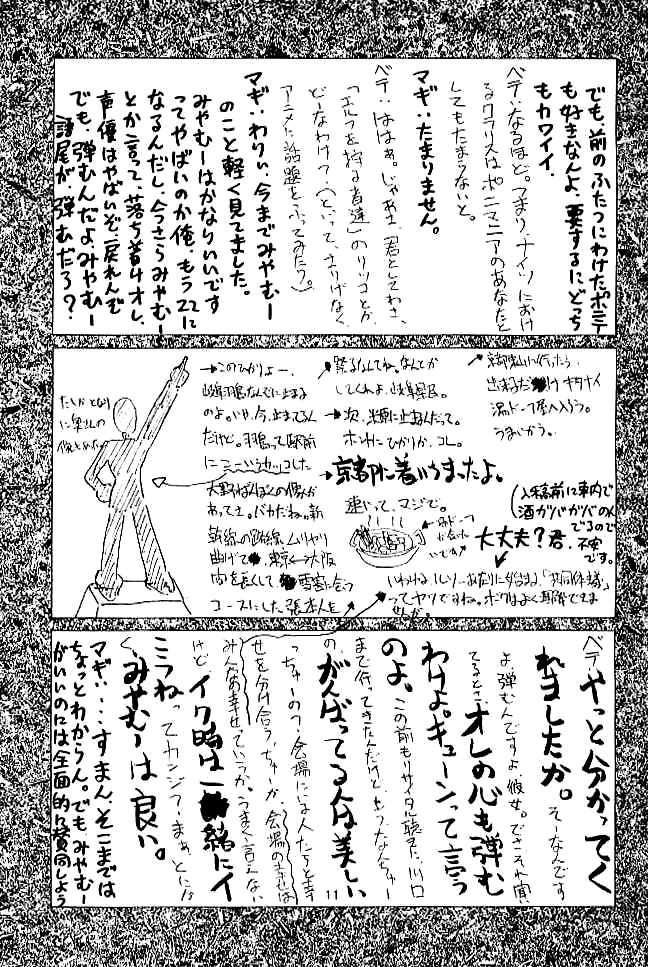 でも、前のふたつにわけたポニテ
も好きなんよ、要するにどっち
もカワイイ。
ベテ:なるほど。つまり、ナイソにおけ
るクラリスはポニマニアのあなたと
してもたまらないと。
マギ:たまりません。
ベテ:ははぁ。じゃあさ、君としてわさ、
「エルフを狩る者達」のリツコとか、
どーなわけ?(といって、さりげなく
アニメに話題をふってみたり。)
マギ:わりぃ、今までみやむー
のこと軽く見てました。
みやむーはかなりいいです
ってやばいのか俺、もう22に
なるんだし、今さらみやむー
とか言って、落ち着けオレ、
声優はやばいぞ、戻れんぞ
でも、弾むんだよみやむー
語尾が弾むだろ?
京都に行ったら
うまいから。
祭るなんてね。なんとか
してくれよ、岐阜県民。
→次、米原に止まるんだって。
ホントにひかりか、コレ。
→京都に着いちまったよ。
速いって、マジで。
→このひかりよー、
岐阜羽島なんぞに止まる
のよ。いや、今、止まってるん
だけど。羽島って駅前
に
大野ばんぼくの像が
あってよ。バカだね。新
幹線の路線、ムリヤリ
曲げて、東京↔大阪
間を長くして、雪害に会う
コースにした張本人を
(入稿前に車内で
酒ガバガバのん
でるので
不安
です。
大丈夫?君、
いわゆる、ルソーあたりに始まる、「共同体感」
ってヤツですね。ボクはよく理解できま
せんが。
ベテ:やっと分かってく
れましたか。そーなんです
よ、弾むんですよ、彼女。でさ、それ聞い
てるとさ、オレの心も弾む
わけよ。キューンって言う
のよ。この前もリサイタル聴きに、川口
まで行ってきたんだけど、もうなんちゅー
の、がんばってる人は美しい
っちゅーの?会場にいる人たちと幸
せを分け合うっちゅーか、会場の幸せは
みんなの幸せっていうか。うまく言えない
けど、イク時は一緒にイ
こうねってカンジ?まぁ、とにか
く、みやむーは良い。
マギ:・・・すまん、そこまでは
ちょっとわからん。でも、みやむー
がいいのには全面的に賛同しよう